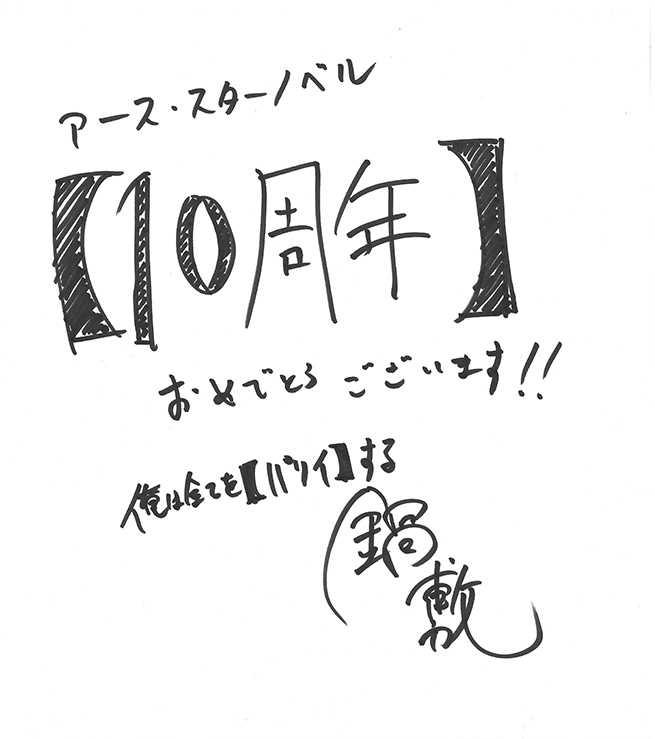 アース・スターノベル
【10周年】
おめでとうございます!!
俺は全てを【パリイ】する
鍋敷